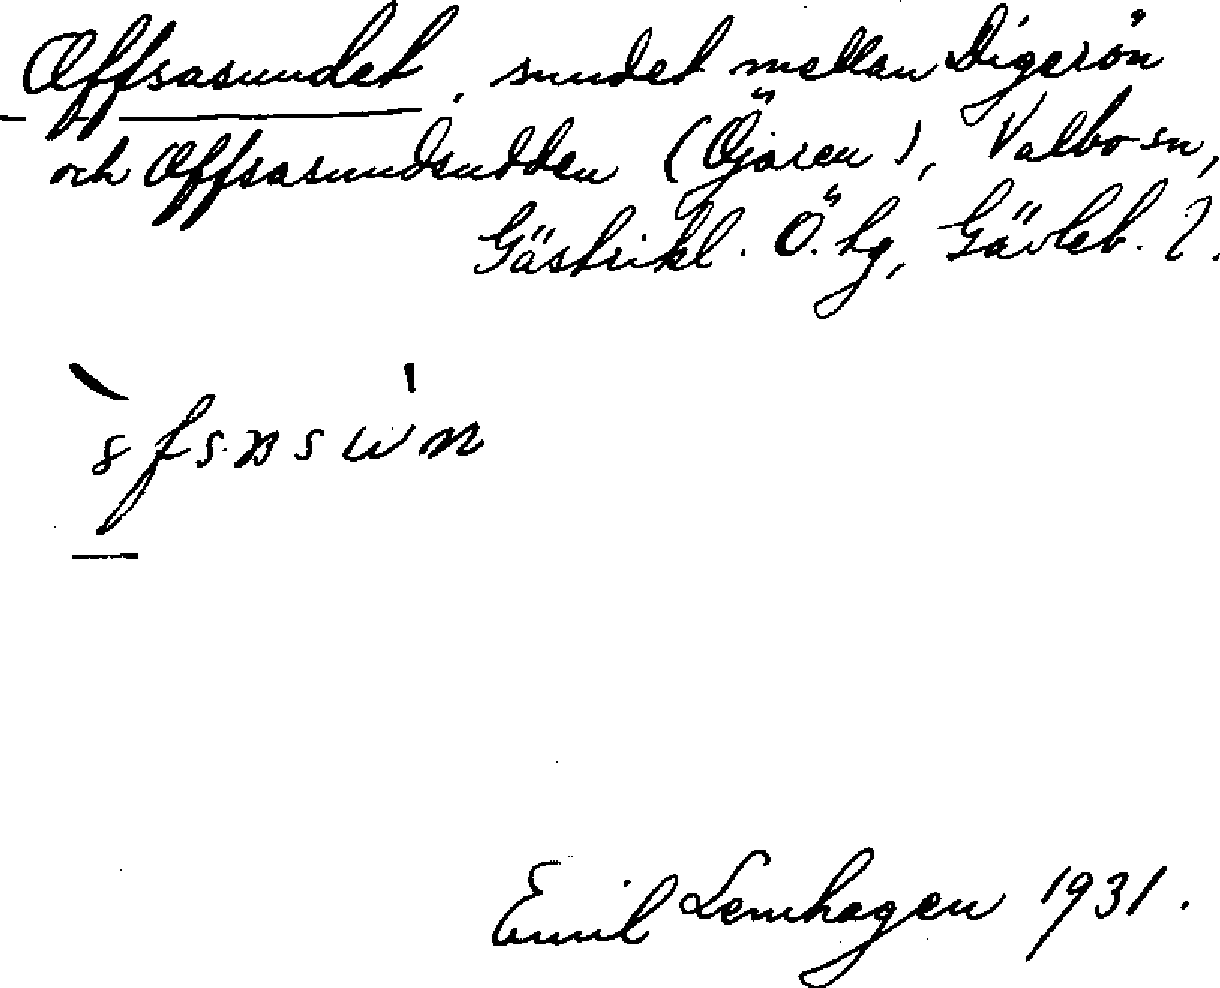 Offsasundet, sundet mellan Digerön
och Offsasundsudden (Öjaren), Valbo sn,
Gästrikl. Ö. hg, Gävleb. l.
Emil Lemhagen 1931.